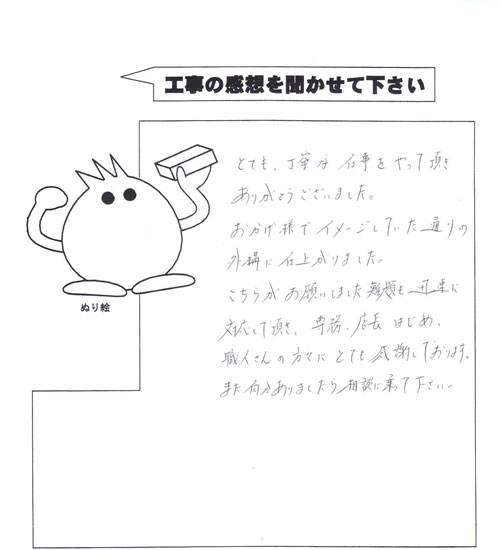 工事の感想を聞かせて下さい
とても、丁寧な仕事をやって頂き
ありがとうございました。
おかげ様でイメージしていた通りの
外構に仕上がりました。
こちらがお願いしました難題も迅速に
対応して頂き、専務、店長はじめ、
職人さんの方々にとても感謝しております。
また何かありましたら相談に乗って下さい。
ぬり絵